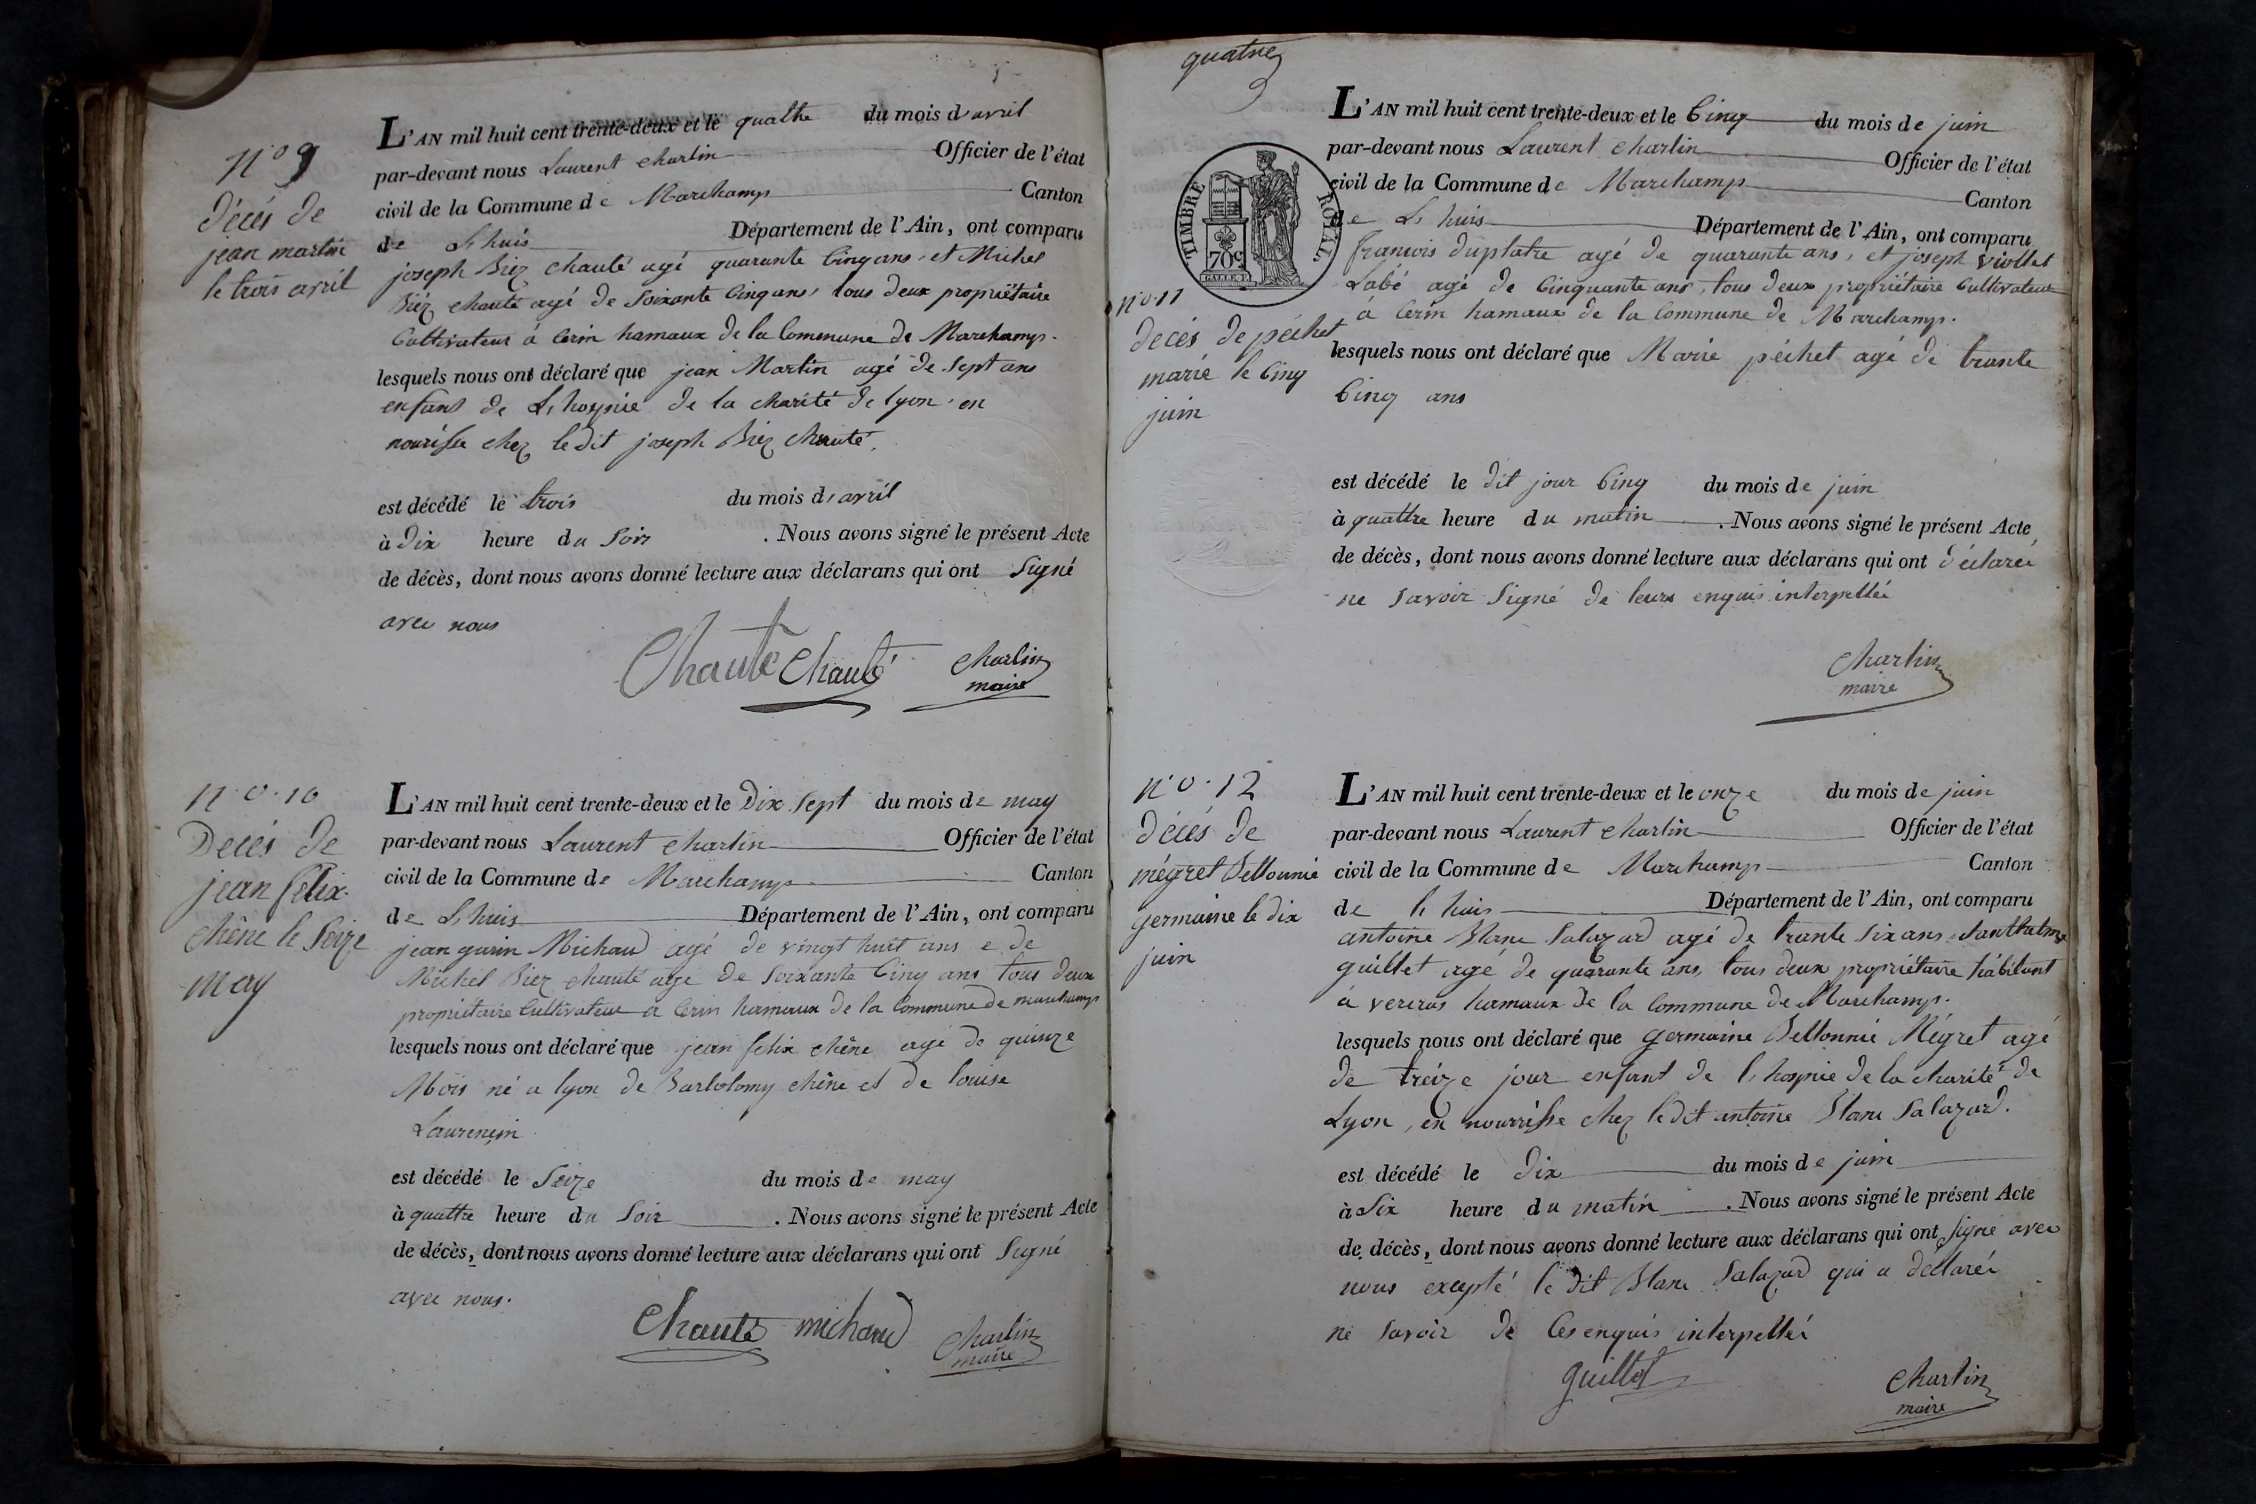 n° 9
décés de
jean martin
le trois avril
L'AN mil huit cent trente-deux et le quatre du mois d'avril
par-devant nous Laurent charlin Officier de l'état
civil de la Commune de Marchamp Canton
de L'huis Département de l'Ain, ont comparu
joseph Biez chauté agé quarante Cinq ans, et Michel
Biez chauté agé de Soixante Cinq ans, tous deux propriétaire
Cultivateur à Cerin hamaux de la Commune de Marchamp.
lesquels nous ont déclaré que jean Martin agé de Sept ans
enfant de L'hospice de la charité de lyon, en
nourisse chez le dit joseph Biez chauté.
est décédé le trois du mois d'avril
à dix heure du Soir . Nous avons signé le présent Acte
de décès, dont nous avons donné lecture aux déclarans qui ont Signé
avec nous
Chauté Chauté charlin
maire
n·o·10
Decés de
jean felix
chêne le Seize
may
L'AN mil huit cent trente-deux et le Dix Sept du mois de may
par-devant nous Laurent charlin Officier de l'état
civil de la Commune de Marchamp Canton
de L'huis Département de l'Ain, ont comparu
jean guin Michaud agé de vingt huit ans e de
Michel Biez chauté agé de Soixante Cinq ans tous deux
propriétaire Cultivateur a Cerin hamaux de la Commune de marchamp
lesquels nous ont déclaré que jean felix chêne agé de quinze
Mois né a lyon de Bartolomy chêne et de louise
Laurencin
est décédé le Seize du mois de may
à quattre heure du Soir . Nous avons signé le présent Acte
de décès, dont nous avons donné lecture aux déclarans qui ont Signé
avec nous.
Chauté michaud charlin
maire
quatre
TIMBRE ROYAL
70c
n·o·11
décés de péchet
marie le Cinq
juin
L'AN mil huit cent trente-deux et le Cinq du mois de juin
par-devant nous Laurent charlin Officier de l'état
civil de la Commune de Marchamp Canton
de L'huis Département de l'Ain, ont comparu
francois duplatre agé de quarante ans, et joseph viollet
Labé agé de Cinquante ans, tous deux propriétaire Cultivateur
à Cerin hamaux de la Commune de Marchamp.
lesquels nous ont déclaré que Marie péchet agé de trante
Cinq ans
est décédé le dit jour Cinq du mois de juin
à quattre heure du matin . Nous avons signé le présent Acte
de décès, dont nous avons donné lecture aux déclarans qui ont déclaréi
ne Savoir Signé de leurs enquis interpelléi
charlin
maire
n·o·12
décés de
mégret Dellounié
germaine le dix
juin
L'AN mil huit cent trente-deux et le onze du mois de juin
par-devant nous Laurent charlin Officier de l'état
civil de la Commune de Marchamp Canton
de l'huis Département de l'Ain, ont comparu
antoine Blanc Salazard agé de trante Six ans,
guillet agé de quarante ans, tous deux propriétaire habitant
à hamaux de la Commune de Marchamp.
lesquels nous ont déclaré que germaine Dellonnié Mégret agé
de treize jour enfant de l'hospice de la charité de
Lyon, en nourrisse chez le dit antoine Blanc Salazard.
est décédé le dix du mois de juin
à Six heure du matin . Nous avons signé le présent Acte
de décès, dont nous avons donné lecture aux déclarans qui ont Signé avec
nous excepté le dit Blanc Salazard qui a déclaréi
ne Savoir de Ces enquis interpelléi
guillet charlin
maire